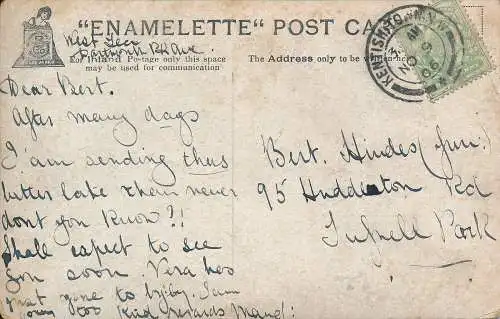 "ENAMELETTE" POST CA
West Lee
Dartmouth Pk Ave.
For Inland Postage only this space
may be used for communication
The Address only to be written he
KENTISH TOWN N.W.
Dear Bert.
After many days
I am sending thus
better late than never
dont you know?!
Shall expect to see
you soon. Vera has
just gone to I am
too kind regards
Bert. Hindes (Jun.)
95 Huddleston Rd
Tufnell Park